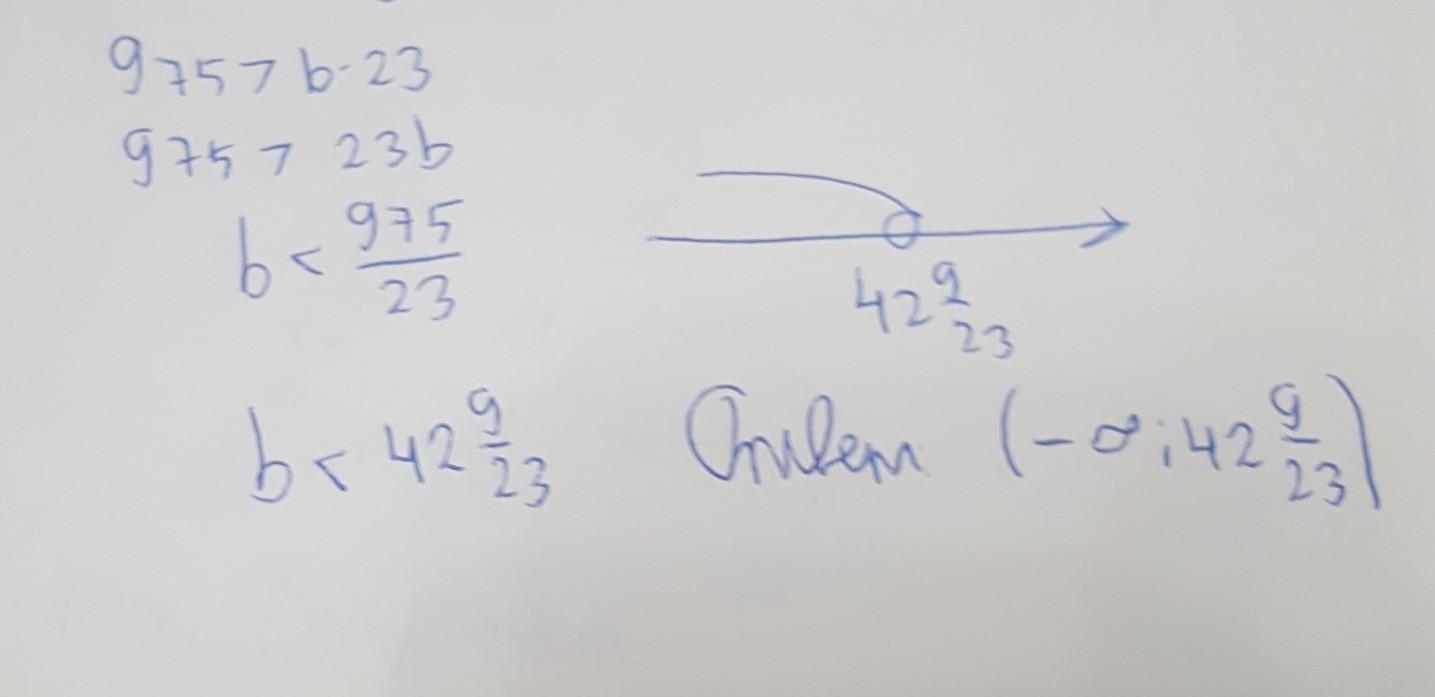 975 > b · 23
975 > 23b
b < 975/23
42 9/23
b < 42 9/23 Ответ (-∞; 42 9/23)